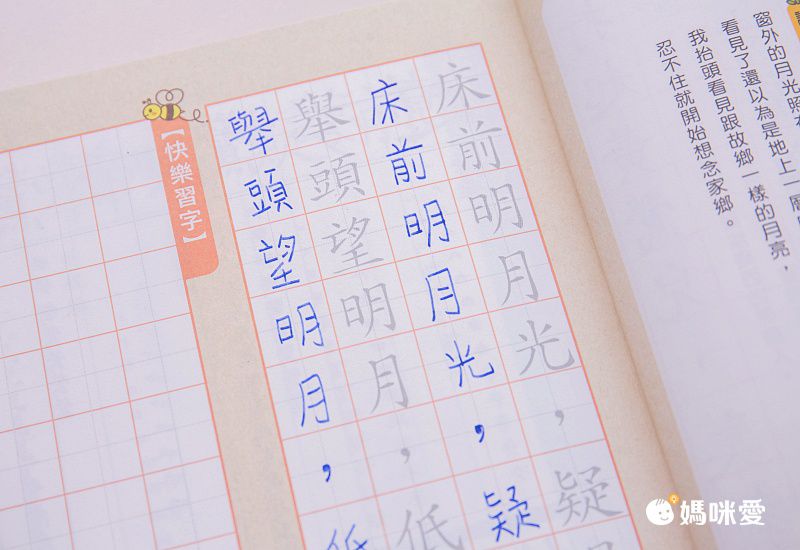 窗外的月光照
看見了還以為是地上一層
我抬頭看見跟故鄉一樣的月亮，
忍不住就開始想念家鄉。
床前明月光，疑
床前明月光，疑
舉頭望明月，低
舉頭望明月，低
【快樂習字】
媽咪愛